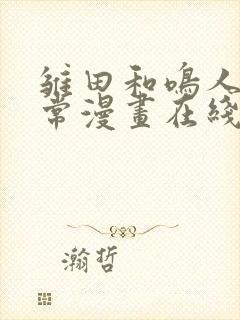 雏田和鸣人
常漫畫在綫
瀚哲